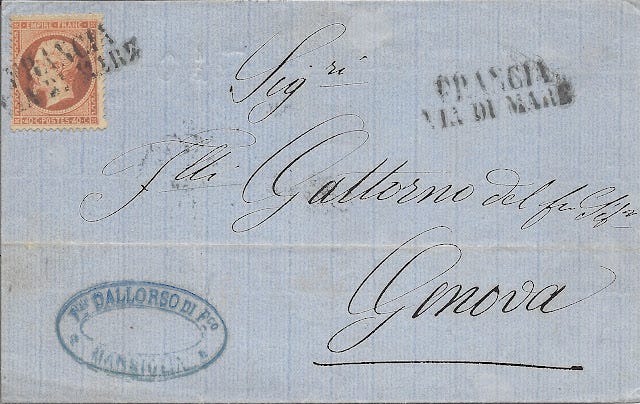 EMPIRE FRANC
40 C POSTES 40 C
FRANCIA
VIA DI MARE
FRANCIA
VIA DI MARE
Sig.ri
F.lli Gattorno del fu
Genova
DALLORSO DI F.co
MARSIGLIA